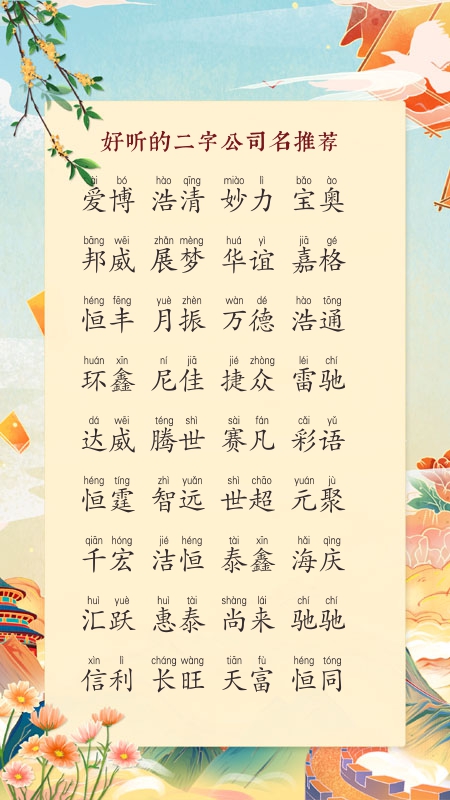 好听的二字公司名推荐
ài bó hào qīng miào lì bǎo ào
爱博 浩清 妙力 宝奥
bāng wēi zhǎn mèng huá yì jiā gé
邦威 展梦 华谊 嘉格
héng fēng yuè zhèn wàn dé hào tōng
恒丰 月振 万德 浩通
huán xīn ní jiā jié zhòng léi chí
环鑫 尼佳 捷众 雷驰
dá wēi téng shì sài fán cǎi yǔ
达威 腾世 赛凡 彩语
héng tíng zhì yuǎn shì chāo yuán jù
恒霆 智远 世超 元聚
qiān hóng jié héng tài xīn hǎi qìng
千宏 洁恒 泰鑫 海庆
huì yuè huì tài shàng lái chí chí
汇跃 惠泰 尚来 驰驰
xìn lì cháng wàng tiān fù héng tóng
信利 长旺 天富 恒同